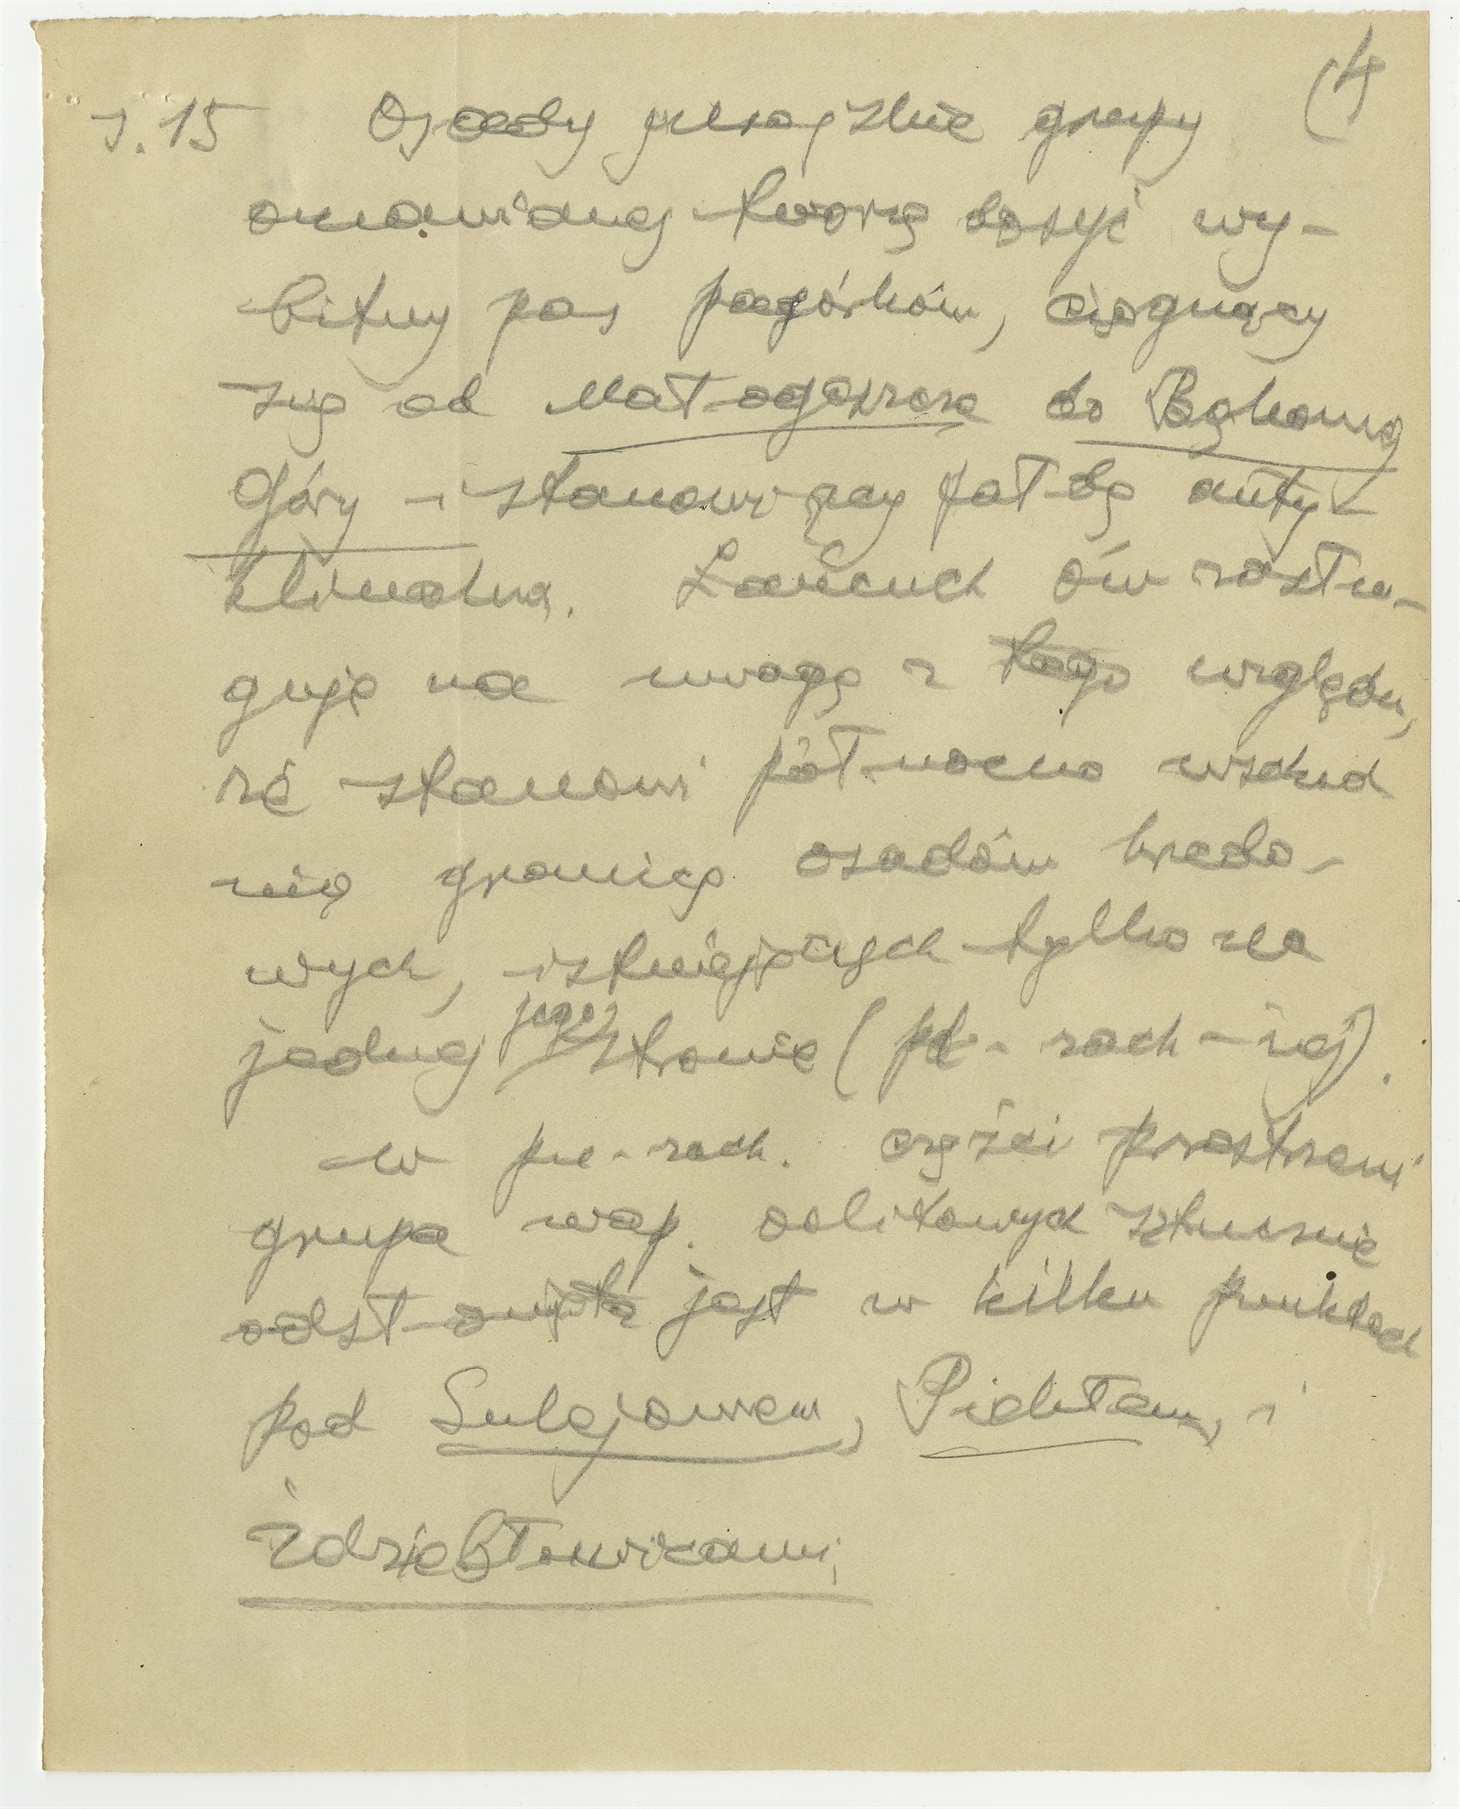 (4
s. 15 Osady jurajskie grupy
omawianej tworzą dosyć wy-
bitny pas pagórków, ciągnący
się od Małogoszcza do Bąkowej
Góry i stanowiący fałdę anty-
klinalną. Łańcuch ów zasłu-
guje na uwagę z tego względu,
że stanowi północno wschod
nią granicę osadów kredo-
wych, istniejących tylko na
jednej jego stronie (pd - zach - iej).
w pn - zach. części przestrzeni
grupa wap. oolitowych sztucznie
odsłonięta jest w kilku punktach
pod Sulejowem, i
Zdziebłowicami;